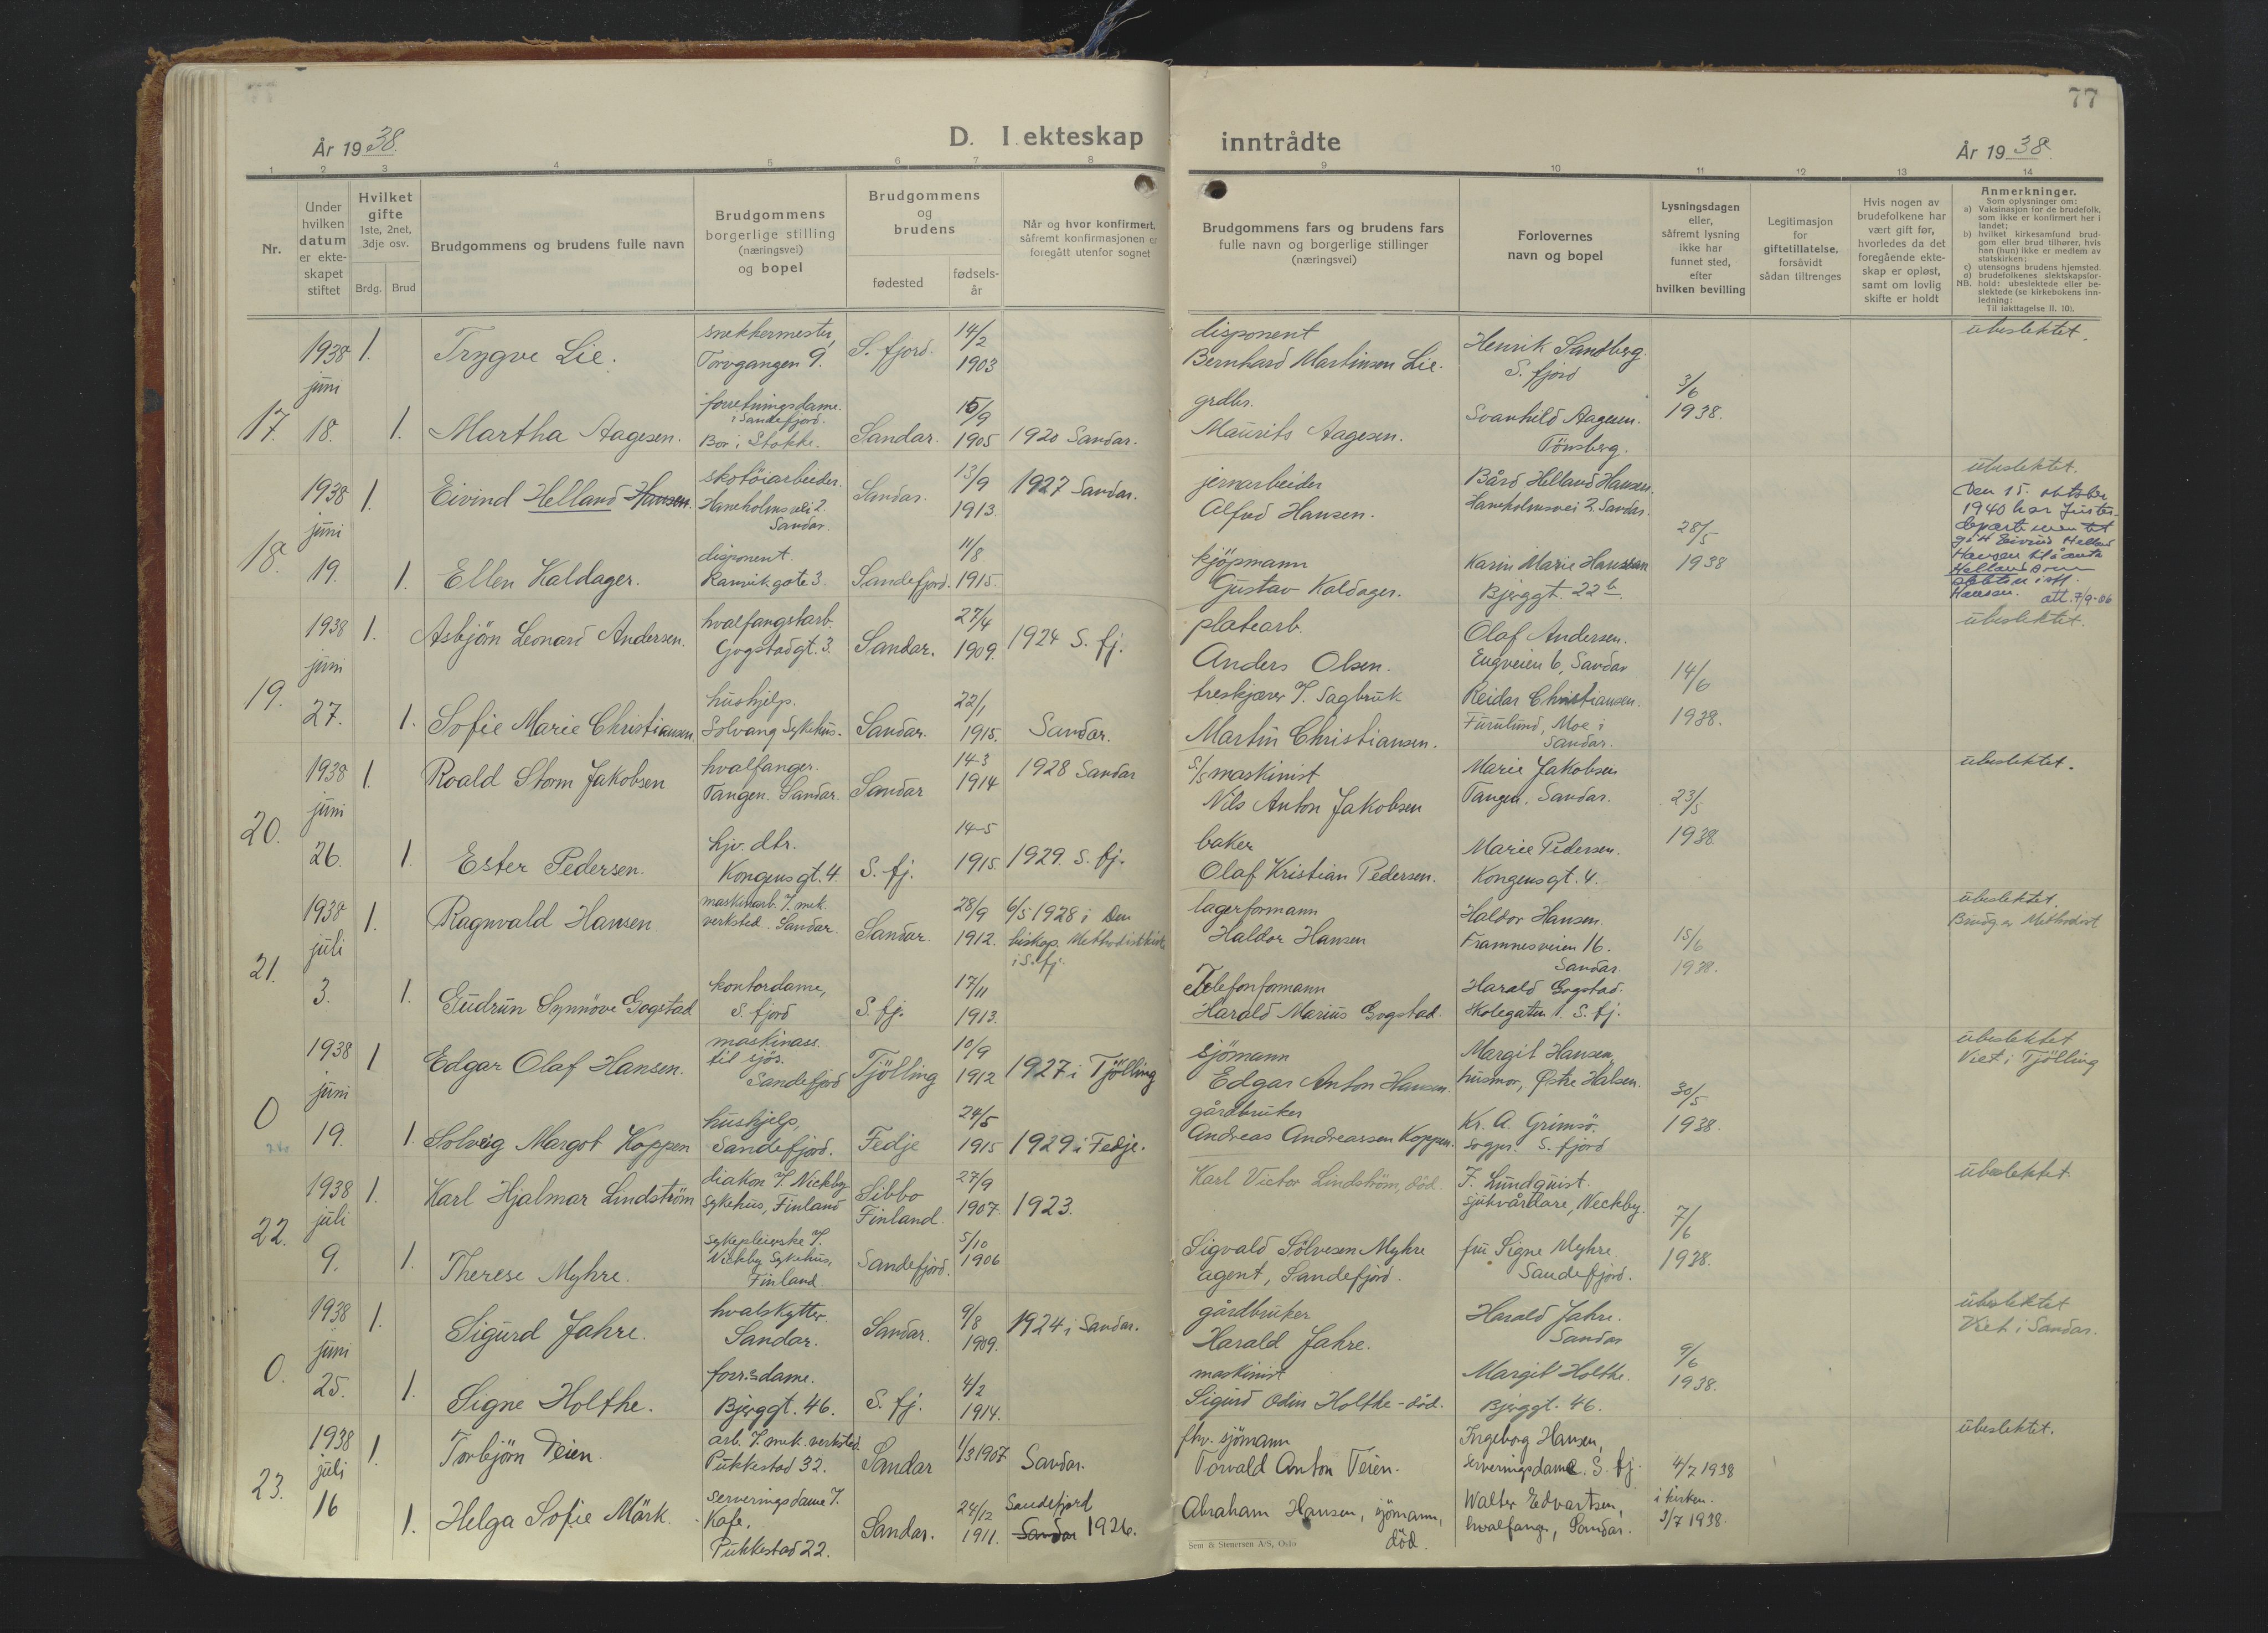 77
År 1938.
D. I ekteskap inntrådte
År 1938.
1 2 3 4 5 6 7 8 9 10 11 12 13 14
Nr.
Under
hvilken
datum
er ekte-
skapet
stiftet
Hvilket
gifte
1ste, 2net,
3dje osv.
Brdg. Brud
Brudgommens og brudens fulle navn
Brudgommens
borgerlige stilling
(næringsvei)
og bopel
Brudgommens
og
brudens
fødested
fødsels-
år
Når og hvor konfirmert,
såfremt konfirmasjonen er
foregått utenfor sognet
Brudgommens fars og brudens fars
fulle navn og borgerlige stillinger
(næringsvei)
Forlovernes
navn og bopel
Lysningsdagen
eller,
såfremt lysning
ikke har
funnet sted,
efter
hvilken bevilling
Legitimasjon
for
giftetillatelse,
forsåvidt
sådan tiltrenges
Hvis nogen av
brudefolkene har
vært gift før,
hvorledes da det
foregående ekte-
skap er opløst,
samt om lovlig
skifte er holdt
Anmerkninger.
Som oplysninger om:
a) Vaksinasjon for de brudefolk,
som ikke er konfirmert her i
landet;
b) hvilket kirkesamfund brud-
gom eller brud tilhører, hvis
han (hun) ikke er medlem av
statskirken;
c) utensogns brudens hjemsted.
d) brudefolkenes slektskapsfor-
NB. hold: ubeslektede eller be-
slektede (se kirkebokens inn-
ledning:
Til iakttagelse II. 10).
17.
1938
juni
18.
1.
Trygve Lie.
snekkermester,
Torvgangen 9.
S. fjord.
14/2
1903
disponent
Bernhard Martinsen Lie.
Henrik Sandberg.
S. fjord
3/6
1938.
ubeslektet.
1.
Martha Aagesen.
forretningsdame.
i Sandefjord.
Bor i Stokke.
Sandar.
15/9
1905
1920 Sandar.
grdbr.
Maurits Aagesen.
Svanhild Aagesen.
Tönsberg.
18.
1938
juni
19.
1.
Eivind Helland Hansen.
skotöiarbeider.
Haneholmsvei 2.
Sandar.
Sandar.
13/9
1913.
1927 Sandar.
jernarbeider
Alfred Hansen.
Bård Helland Hansen.
Haneholmsvei 2. Sandar.
28/5
1938
ubeslektet.
Den 15. oktober
1940 har Justis-
departementet
gitt Eivind Helland
Hansen til å anta
Helland som
slektsn. istf.
Hansen. att. 7/9-86
1.
Ellen Kaldager.
disponent.
Ranvikgate 3.
Sandefjord.
11/8
1915.
kjöpmann
Gustav Kaldager.
Karin Marie Hanssen
Bjerggt. 22 b.
19.
1938
juni
27.
1.
Asbjörn Leonard Andersen.
hvalfangstarb.
Gogstadgt. 3.
Sandar.
27/4
1909.
1924 S. fj.
platearb.
Anders Olsen.
Olaf Andersen.
Engveien 6, Sandar
14/6
1938.
ubeslektet.
1.
Sofie Marie Christiansen.
hushjelp.
Solvang Sykehus.
Sandar.
22/1
1915.
Sandar.
treskjærer v. Sagbruk
Martin Christiansen.
Reidar Christiansen.
Furulund, Moe i
Sandar.
20.
1938
juni
26.
1.
Roald Storm Jakobsen
hvalfanger.
Tangen. Sandar.
Sandar
14-3
1914
1928 Sandar
s/s maskinist
Nils Anton Jakobsen
Marie Jakobsen
Tangen, Sandar.
23/5
1938.
ubeslektet.
1.
Ester Pedersen.
hjv. dtr.
Kongensgt. 4.
S. fj.
14-5
1915
1929. S. fj.
baker
Olaf Kristian Pedersen.
Marie Pedersen.
Kongensgt. 4.
21.
1938
juli
3.
1.
Ragnvald Hansen.
maskinarb. v. mek.
verksted. Sandar.
Sandar.
28/9
1912.
6/5 1928 i Den
biskop. Methodistkirke
i S. fj.
lagerformann
Haldor Hansen
Haldor Hansen.
Framnesveien 16.
Sandar.
15/6
1938.
ubeslektet.
Brudg. er Methodist
1.
Gudrun Synnöve Gogstad
kontordame,
S. fjord
S. fj.
17/11
1913.
Telefonformann
Harald Marius Gogstad.
Harald Gogstad.
Skolegaten 1. S. fj.
0
1938
juni
19.
1
Edgar Olaf Hansen.
maskinass.
til sjös.
Sandefjord
Tjölling
10/9
1912
1927 i Tjölling
sjömann
Edgar Anton Hansen.
Margit Hansen,
husmor, Østre Halsen.
30/5
1938.
ubeslektet
Viet i Tjölling
1.
Solveig Margot Koppen
hushjelp,
Sandefjord.
Fedje
24/5
1915
1929 i Fedje.
gårdbruker
Andreas Andreassen Koppen.
Kr. A. Grimsö.
sogpr. S. fjord
22.
1938
juli
9.
1.
Karl Hjalmar Lindström
diakon v. Nickby
sykehus, Finland
Sibbo
Finland.
27/9
1907.
1923.
Karl Victor Lindström, död.
F. Lundquist.
sjukvårdare, Nickby.
7/6
1938.
ubeslektet.
1.
Therese Myhre.
sykepleierske v.
Nickby Sykehus,
Finland.
Sandefjord.
5/10
1906
Sigvald Sölvesen Myhre
agent, Sandefjord.
fru Signe Myhre.
Sandefjord.
0.
1938
juni
25.
1.
Sigurd Jahre.
hvalskytter.
Sandar.
Sandar.
9/8
1909.
1924 i Sandar.
gårdbruker
Harald Jahre.
Harald Jahre.
Sandar
9/6
1938.
ubeslektet
Viet i Sandar.
1.
Signe Holthe.
forr.sdame.
Bjerggt. 46.
S. fj.
4/2
1914.
maskinist
Sigurd Odin Holthe - död.
Margit Holthe.
Bjerggt. 46.
23.
1938
juli
16
1.
Torbjörn Teien.
arb. v. mek. verksted.
Pukkestad 32.
Sandar
1/3 1907
Sandar.
fhv. sjömann
Torvald Anton Teien.
Ingeborg Hansen,
serveringsdame. S. fj.
4/7 1938
ubeslektet.
1.
Helga Sofie Mörk.
serveringsdame v.
Kafe.
Pukkestad 22.
Sandar.
24/12
1911.
Sandefjord
Sandar 1926.
Abraham Hansen, sjömann,
död.
Walter Edvartsen,
hvalfanger, Sandar.
i kirken.
3/7 1938.
Sem & Stenersen A/S, Oslo